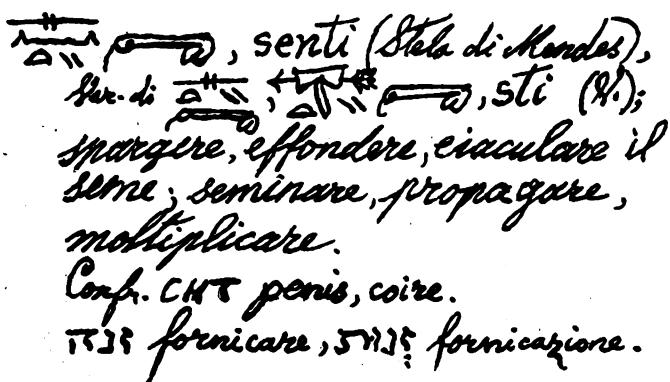 , senti (Stela di Mendes),
Var. di , , sti (V.);
spargere, effondere, eiaculare il
seme; seminare, propagare,
moltiplicare.
Confr. ⲥⲏⲧ penis, coire.
זנה fornicare, זְנות fornicazione.